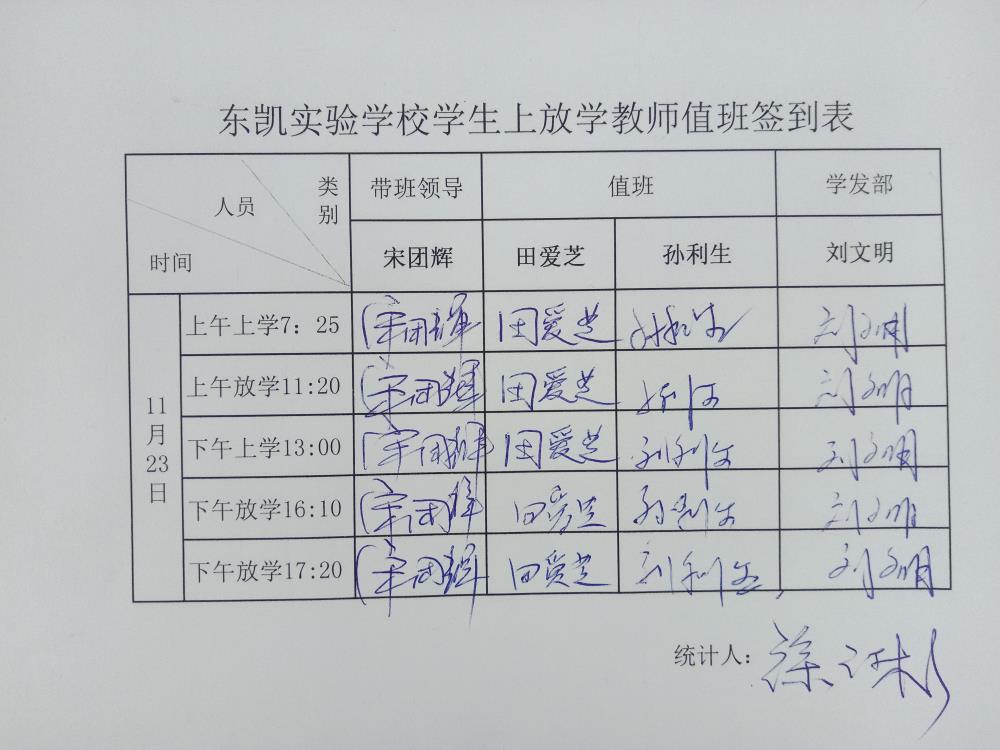 东凯实验学校学生上放学教师值班签到表
类别 带班领导 值班 学发部
人员
时间 宋团辉 田爱芝 孙利生 刘文明
11月23日
上午上学7：25 宋团辉 田爱芝 孙利生 刘文明
上午放学11:20 宋团辉 田爱芝 刘文明
下午上学13:00 宋团辉 田爱芝 孙利生 刘文明
下午放学16:10 宋团辉 田爱芝 孙利生 刘文明
下午放学17:20 宋团辉 田爱芝 孙利生 刘文明
统计人：徐